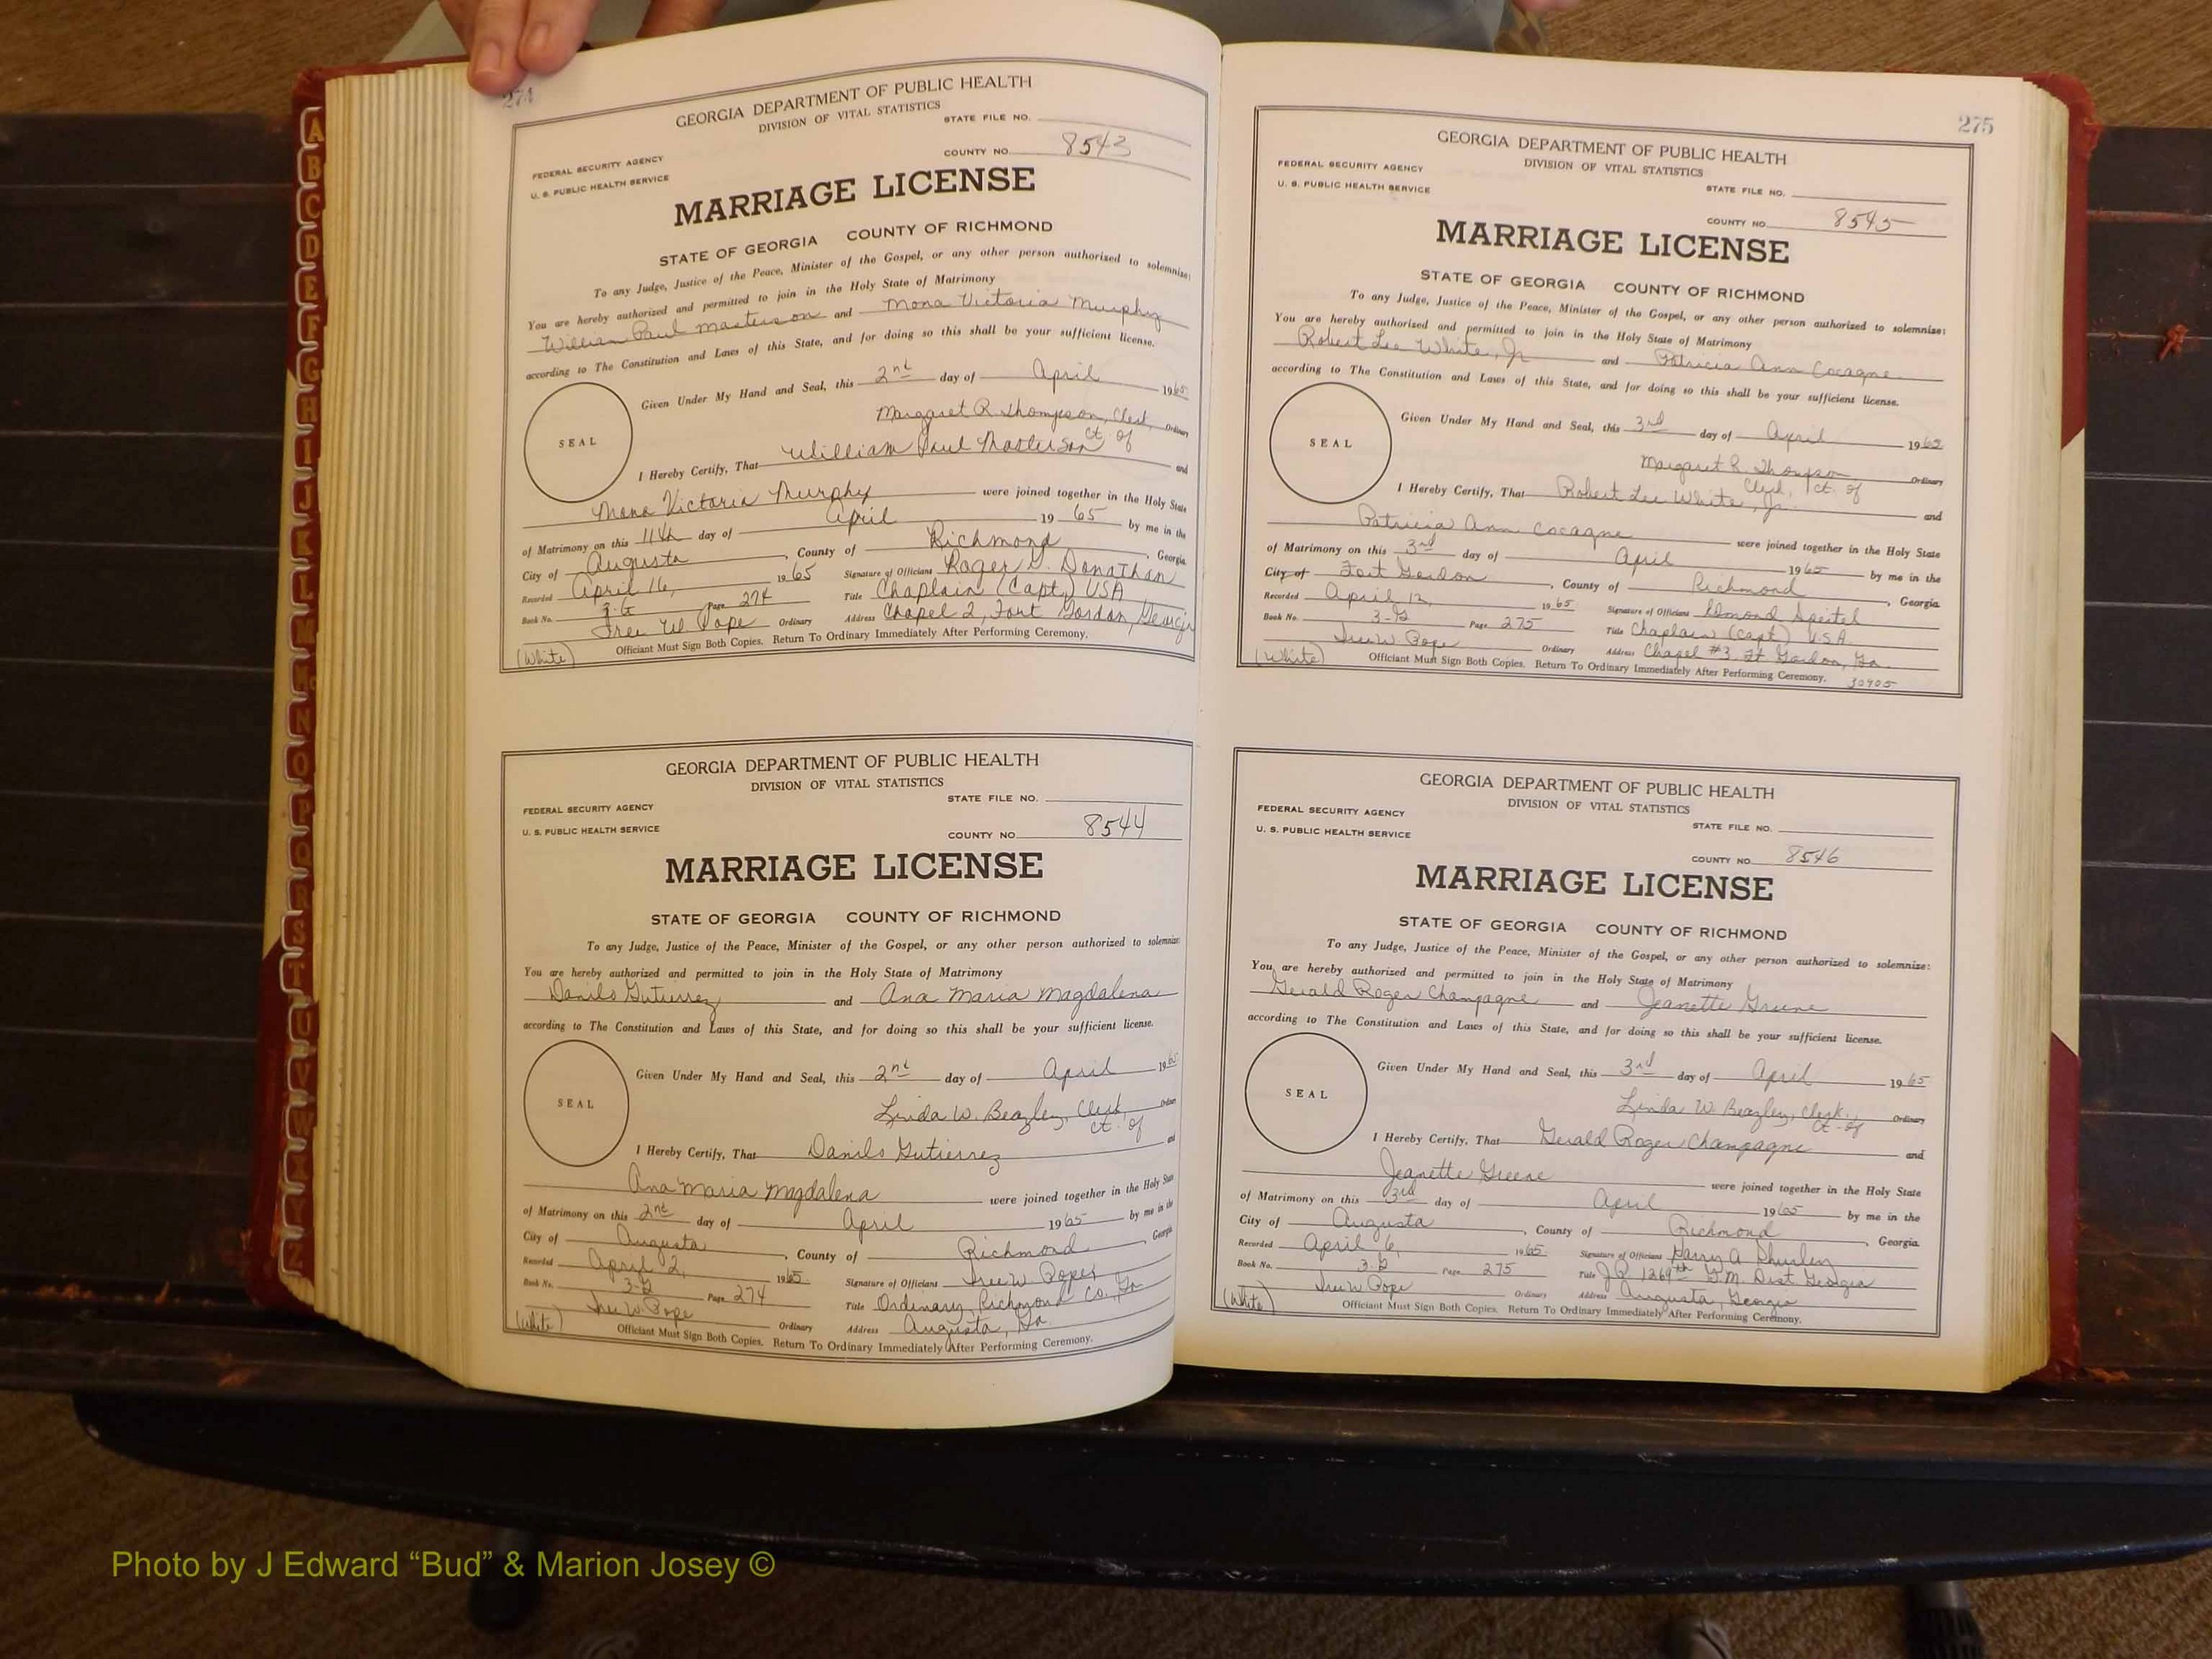 274
GEORGIA DEPARTMENT OF PUBLIC HEALTH
DIVISION OF VITAL STATISTICS
STATE FILE NO.
FEDERAL SECURITY AGENCY
U. S. PUBLIC HEALTH SERVICE
COUNTY NO. 8543
MARRIAGE LICENSE
STATE OF GEORGIA COUNTY OF RICHMOND
To any Judge, Justice of the Peace, Minister of the Gospel, or any other person authorized to solemnize:
You are hereby authorized and permitted to join in the Holy State of Matrimony
William Paul Masterson and Mona Victoria Murphy
according to The Constitution and Laws of this State, and for doing so this shall be your sufficient license.
Given Under My Hand and Seal, this 2nd day of April 1965
SEAL
Margaret R. Thompson, Clerk, Ordinary
ct. of
I Hereby Certify, That William Paul Masterson and
Mona Victoria Murphy were joined together in the Holy State
of Matrimony on this 11th day of April 19 65 by me in the
City of Augusta, County of Richmond, Georgia
Recorded April 16, 1965 Signature of Officiant Roger Donathan
Book No. 3-G Page 274 Title Chaplain (Capt.) USA
Ordinary Address Chapel 2, Fort Gordon, Georgia
(White) Officiant Must Sign Both Copies. Return To Ordinary Immediately After Performing Ceremony.
GEORGIA DEPARTMENT OF PUBLIC HEALTH
DIVISION OF VITAL STATISTICS
STATE FILE NO.
FEDERAL SECURITY AGENCY
U. S. PUBLIC HEALTH SERVICE
COUNTY NO. 8544
MARRIAGE LICENSE
STATE OF GEORGIA COUNTY OF RICHMOND
To any Judge, Justice of the Peace, Minister of the Gospel, or any other person authorized to solemnize:
You are hereby authorized and permitted to join in the Holy State of Matrimony
Danilo Gutierrez and Ana Maria Magdalena
according to The Constitution and Laws of this State, and for doing so this shall be your sufficient license.
Given Under My Hand and Seal, this 2nd day of April 1965
SEAL
Linda W. Beazley, Clerk, Ordinary
ct. of
I Hereby Certify, That Danilo Gutierrez and
Ana Maria Magdalena were joined together in the Holy State
of Matrimony on this 2nd day of April 1965 by me in the
City of Augusta, County of Richmond, Georgia
Recorded April 2, 1965 Signature of Officiant
Book No. 3-G Page 274 Title Ordinary, Richmond Co., Ga
Ordinary Address Augusta, Ga.
(White) Officiant Must Sign Both Copies. Return To Ordinary Immediately After Performing Ceremony.
275
GEORGIA DEPARTMENT OF PUBLIC HEALTH
DIVISION OF VITAL STATISTICS
FEDERAL SECURITY AGENCY
U. S. PUBLIC HEALTH SERVICE
STATE FILE NO.
COUNTY NO. 8545
MARRIAGE LICENSE
STATE OF GEORGIA COUNTY OF RICHMOND
To any Judge, Justice of the Peace, Minister of the Gospel, or any other person authorized to solemnize:
You are hereby authorized and permitted to join in the Holy State of Matrimony
Robert Lee White, Jr. and Patricia Ann Cocagne
according to The Constitution and Laws of this State, and for doing so this shall be your sufficient license.
Given Under My Hand and Seal, this 3rd day of April 1965
SEAL
Margaret R. Thompson Ordinary
Clerk, ct. of
I Hereby Certify, That Robert Lee White, Jr. and
Patricia Ann Cocagne were joined together in the Holy State
of Matrimony on this 3rd day of April 1965 by me in the
City of Fort Gordon, County of Richmond, Georgia
Recorded April 12, 1965 Signature of Officiant
Book No. 3-G Page 275 Title Chaplain (Capt) U.S.A.
Ordinary Address Chapel #3 Ft Gordon, Ga.
(White) Officiant Must Sign Both Copies. Return To Ordinary Immediately After Performing Ceremony. 30905
GEORGIA DEPARTMENT OF PUBLIC HEALTH
DIVISION OF VITAL STATISTICS
FEDERAL SECURITY AGENCY
U. S. PUBLIC HEALTH SERVICE
STATE FILE NO.
COUNTY NO. 8546
MARRIAGE LICENSE
STATE OF GEORGIA COUNTY OF RICHMOND
To any Judge, Justice of the Peace, Minister of the Gospel, or any other person authorized to solemnize:
You are hereby authorized and permitted to join in the Holy State of Matrimony
Gerald Roger Champagne and Jeanette Greene
according to The Constitution and Laws of this State, and for doing so this shall be your sufficient license.
Given Under My Hand and Seal, this 3rd day of April 1965
SEAL
Linda W. Beazley, Clerk, Ordinary
ct. of
I Hereby Certify, That Gerald Roger Champagne and
Jeanette Greene were joined together in the Holy State
of Matrimony on this 3rd day of April 1965 by me in the
City of Augusta, County of Richmond, Georgia
Recorded April 6, 1965 Signature of Officiant Harry A
Book No. 3-G Page 275 Title J.P. 1269th G.M. Dist Georgia
Ordinary Address Augusta, Georgia
(White) Officiant Must Sign Both Copies. Return To Ordinary Immediately After Performing Ceremony.
A
B
C
D
E
F
G
H
I
J
K
L
M
Mc
N
O
P
Q
R
S
T
U
V
W
X
Y
Z
Photo by J Edward “Bud” & Marion Josey ©